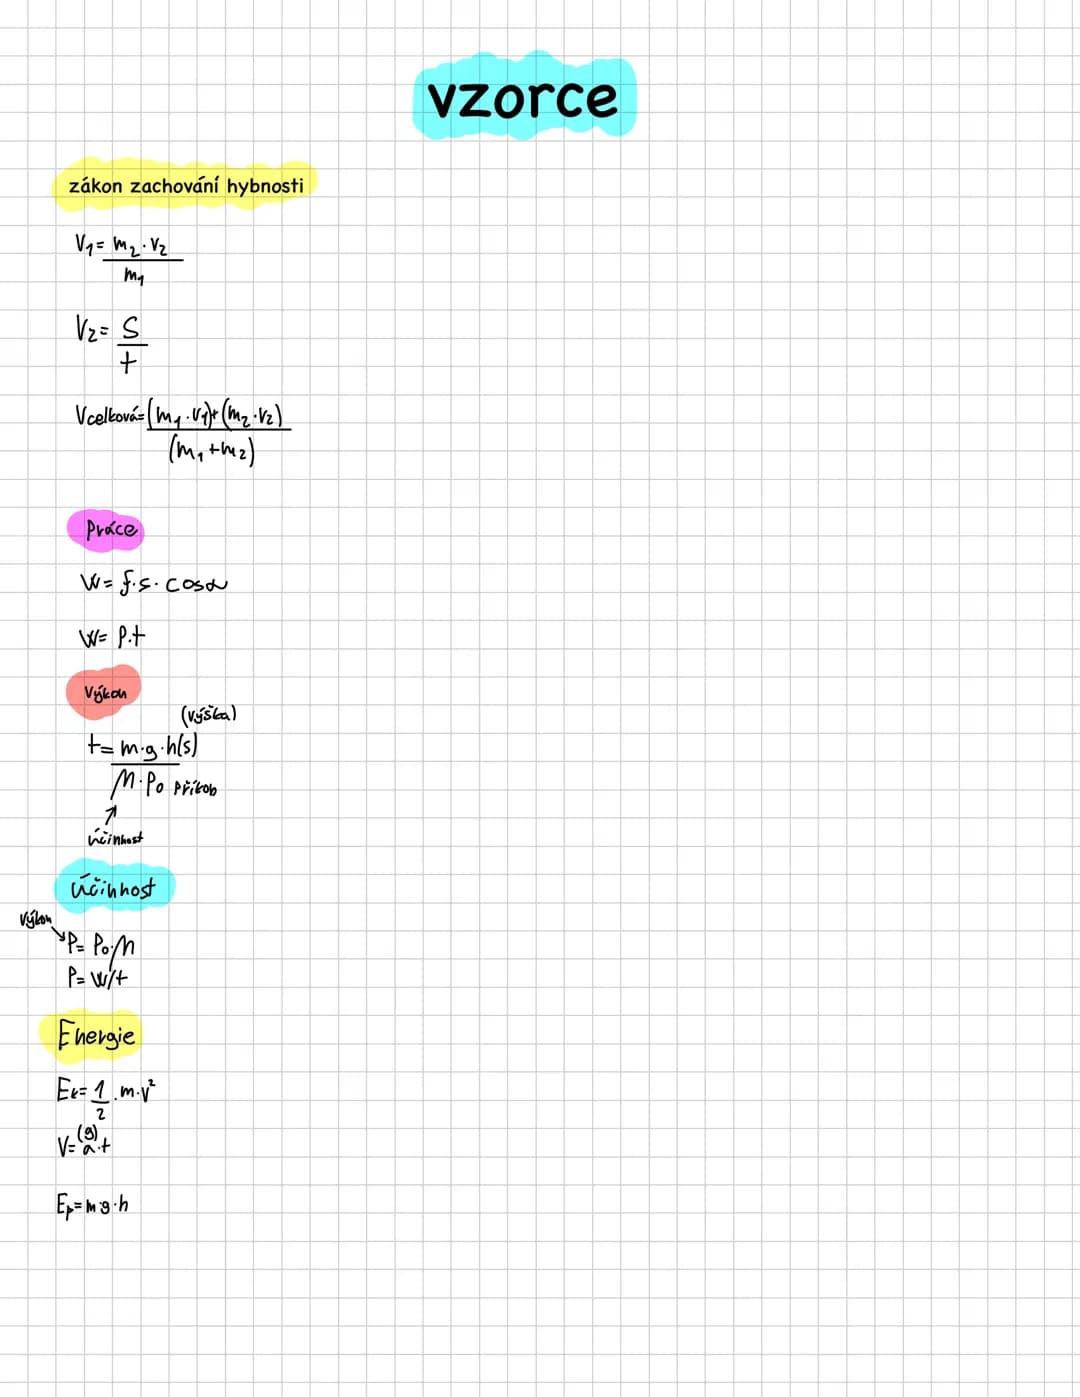 vzorce
zákon zachování hybnosti
V₁= m₂·V₂
m₁
V₂= S
t
Vcelková= (m₁·V₁)+(m₂·V₂)
(m₁+m₂)
Práce
W= f·s·cosα
W= P.t
Výkon
(výška)
t= m·g·h(s)
M·P₀ příkob
účinnost
účinnost
výkon
P= P₀·M
P= W/t
Energie
Eₖ= 1 . m·v²
2
(g)
V= a·t
Eₚ= m·g·h